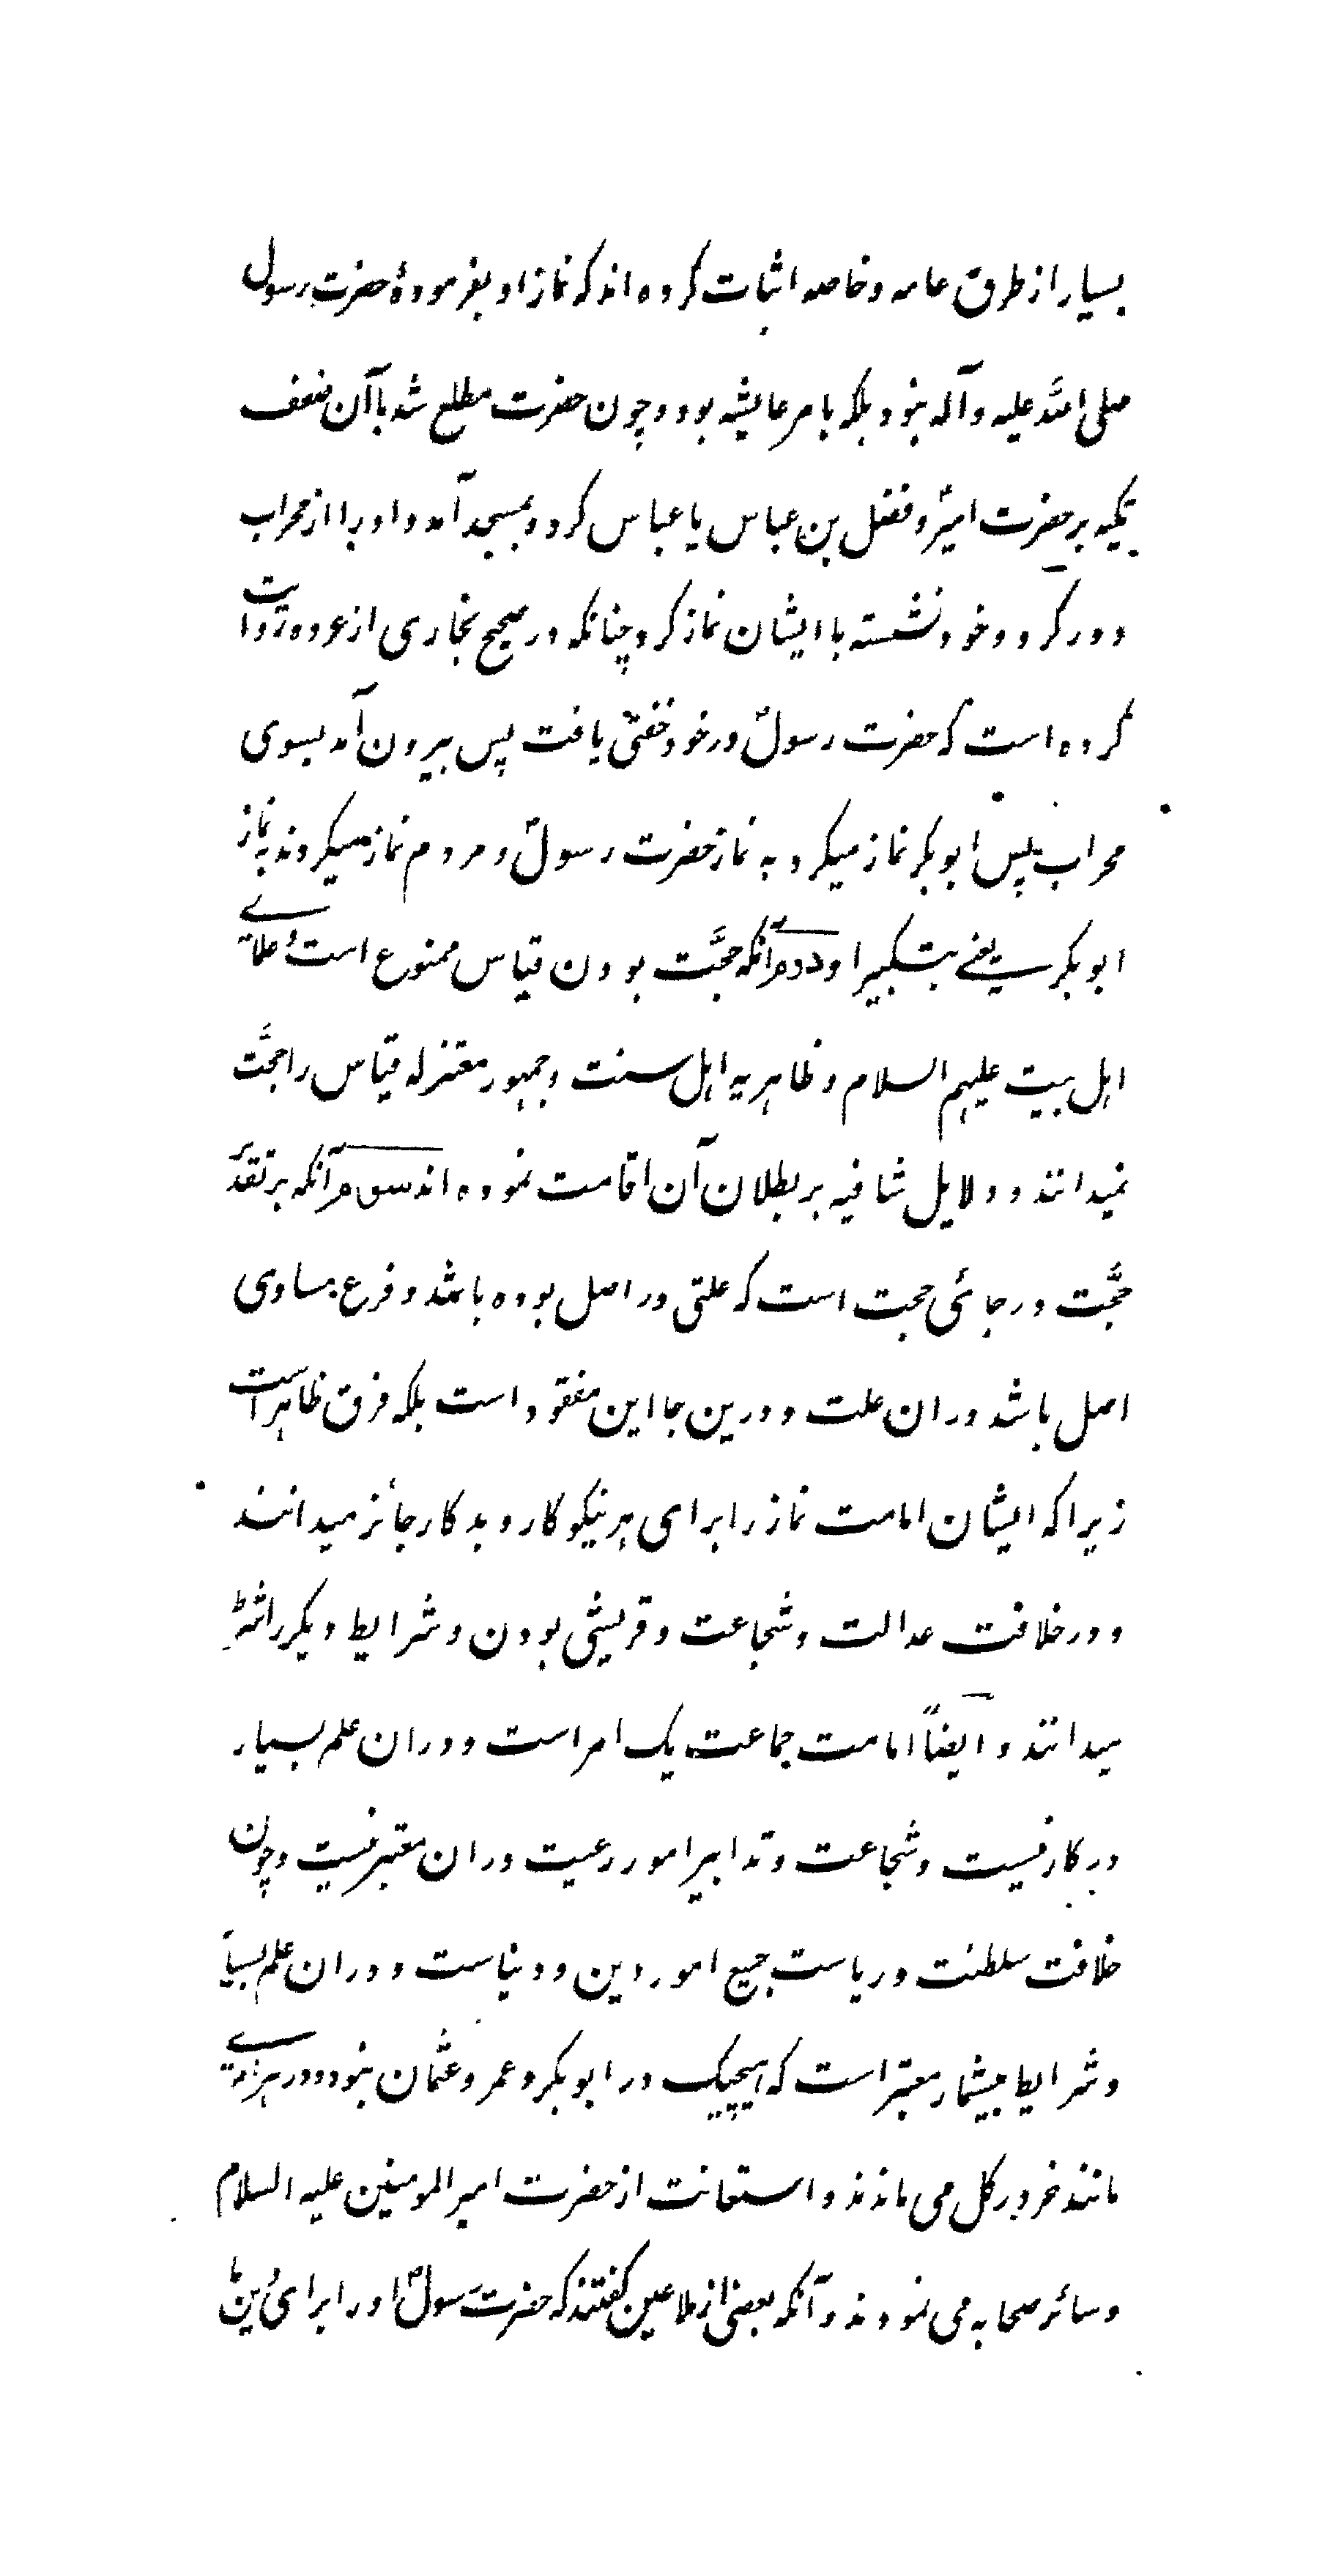 بسیار از طرق عامه و خاصه اثبات کرده اند که نماز او بفرمودهٔ حضرت رسول
صلی الله علیه و آله نبود بلکه بامر عایشه بود و چون حضرت مطلع شد با آن ضعف
تکیه بر حضرت امیرؑ و فضل بن عباس یا عباس کرد و بمسجد آمد و او را از محراب
دور کرد و خود نشسته با ایشان نماز کرد چنانکه در صحیح بخاری از عروه روایت
کرده است که حضرت رسولؐ در خود خفتی یافت پس بیرون آمد بسوی
محراب پس ابوبکر نماز میکرد به نماز حضرت رسولؐ و مردم نماز میکردند به نماز
ابوبکر یعنے بتکبیر او دوم آنکه حجّت بودن قیاس ممنوع است و علمای
اهل بیت علیهم السلام و ظاهریه اهل سنت و جمهور معتزله قیاس را حجّت
نمیدانند و دلایل شافیه بر بطلان آن اقامت نموده اند سوم آنکه بر تقدیر
حجّت در جائی حجت است که علتی در اصل بوده باشد و فرع مساوی
اصل باشد در ان علت و درین جا این مفقود است بلکه فرق ظاهر است
زیرا که ایشان امامت نماز را برای هر نیکوکار و بدکار جائز میدانند
و در خلافت عدالت و شجاعت و قریشی بودن و شرایط دیگر را شرط
میدانند و ایضاً امامت جماعت یک امر است و در ان علم بسیار
در کار نیست و شجاعت و تدابیر امور رعیت در ان معتبر نیست و چون
خلافت سلطنت و ریاست جمیع امور دین و دنیاست و در ان علم بسیار
و شرایط بیشمار معتبر است که هیچیک در ابوبکر و عمر و عثمان نبود و در هر امری
مانند خر در گل می ماندند و استعانت از حضرت امیر المومنین علیه السلام
و سائر صحابه می نمودند و آنکه بعضی از ملاعین گفتند که حضرت رسولؐ او را برای دین ما